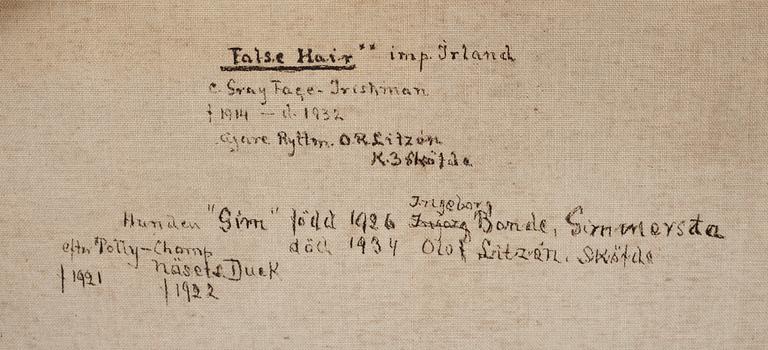 False Hair ** imp. Irland
e. Gray Fage - Irishman
f 1914 - d. 1932
ägare Ryttm. O.R. Litzén
K.3 Sköfde
Ingeborg
Hunden "Gim" född 1926 Bonde, Simmersta
efter Polly-Champ död 1934 Olof Litzén. Sköfde
f 1921 Näsets Duck
f 1922